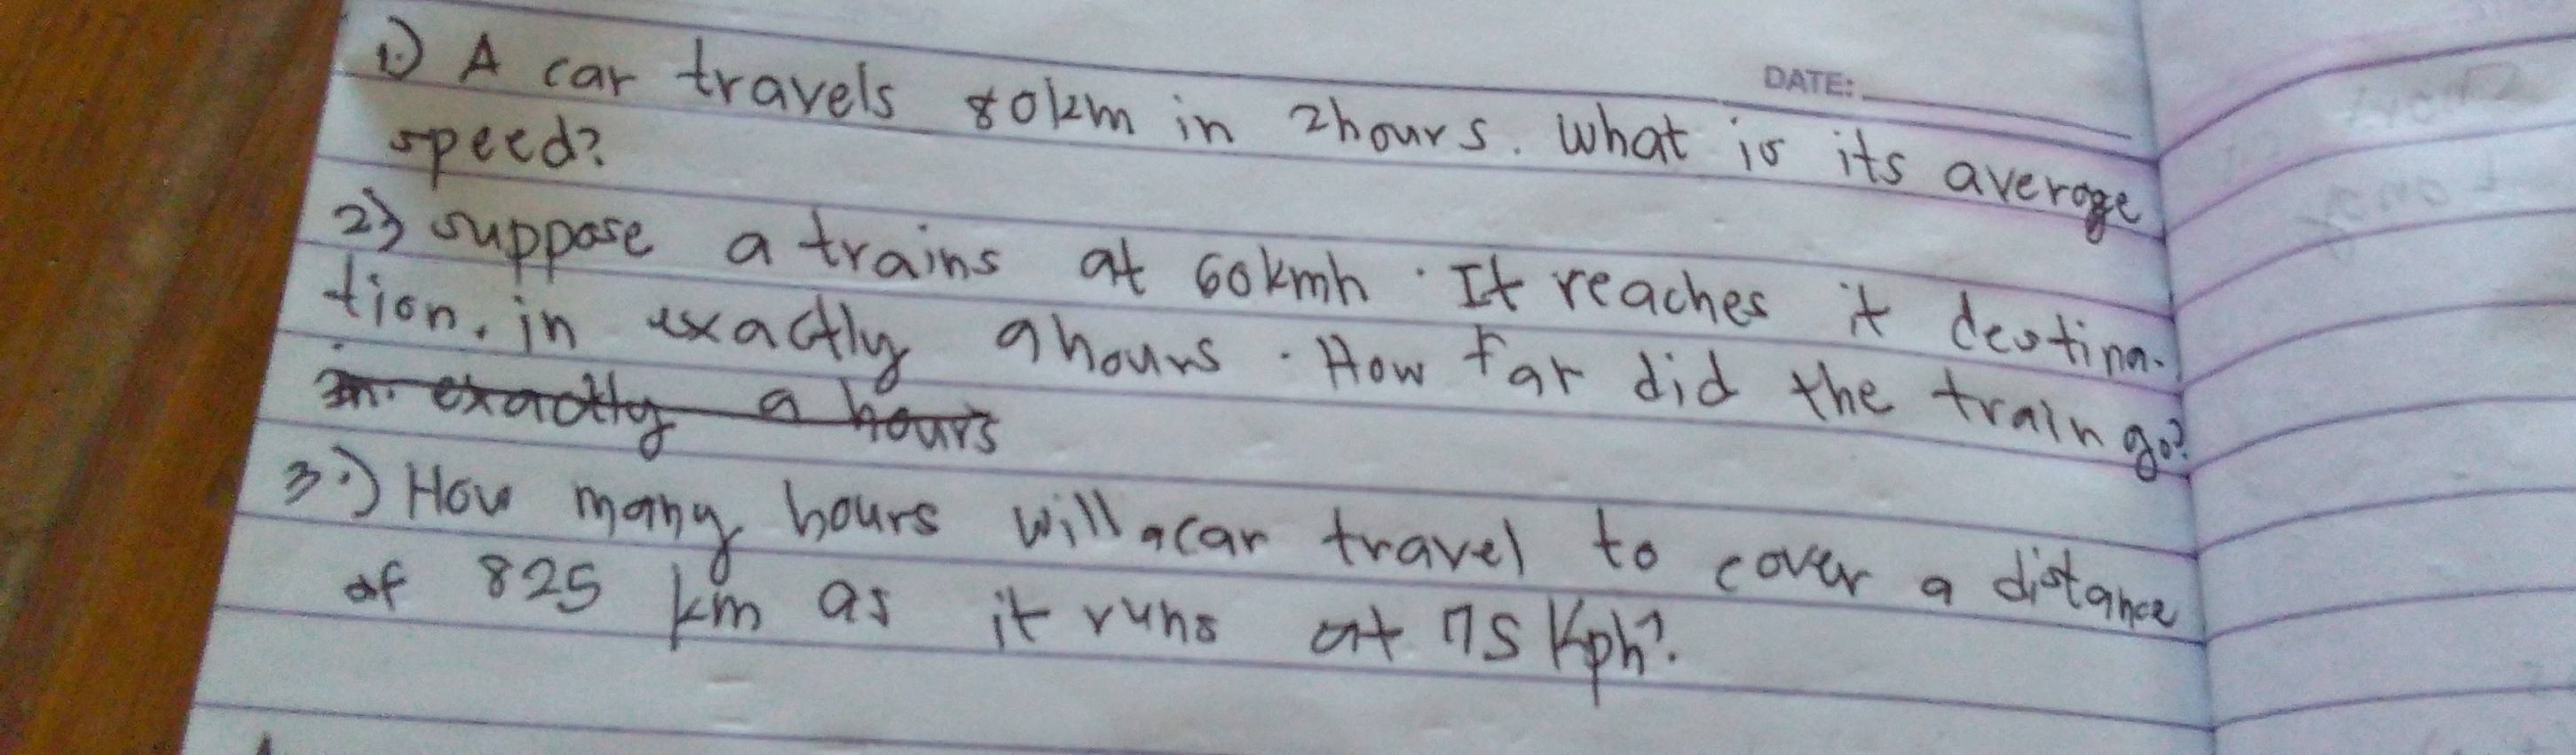 DATE:
1.) A car travels 80km in 2hours. What is its average
speed?
2) suppose a trains at 60kmh. It reaches it destina-
tion. in exactly 9hours. How far did the train go?
in exactly a hours
3.) How many hours will a car travel to cover a distance
of 825 km as it runs at 75 Kph?